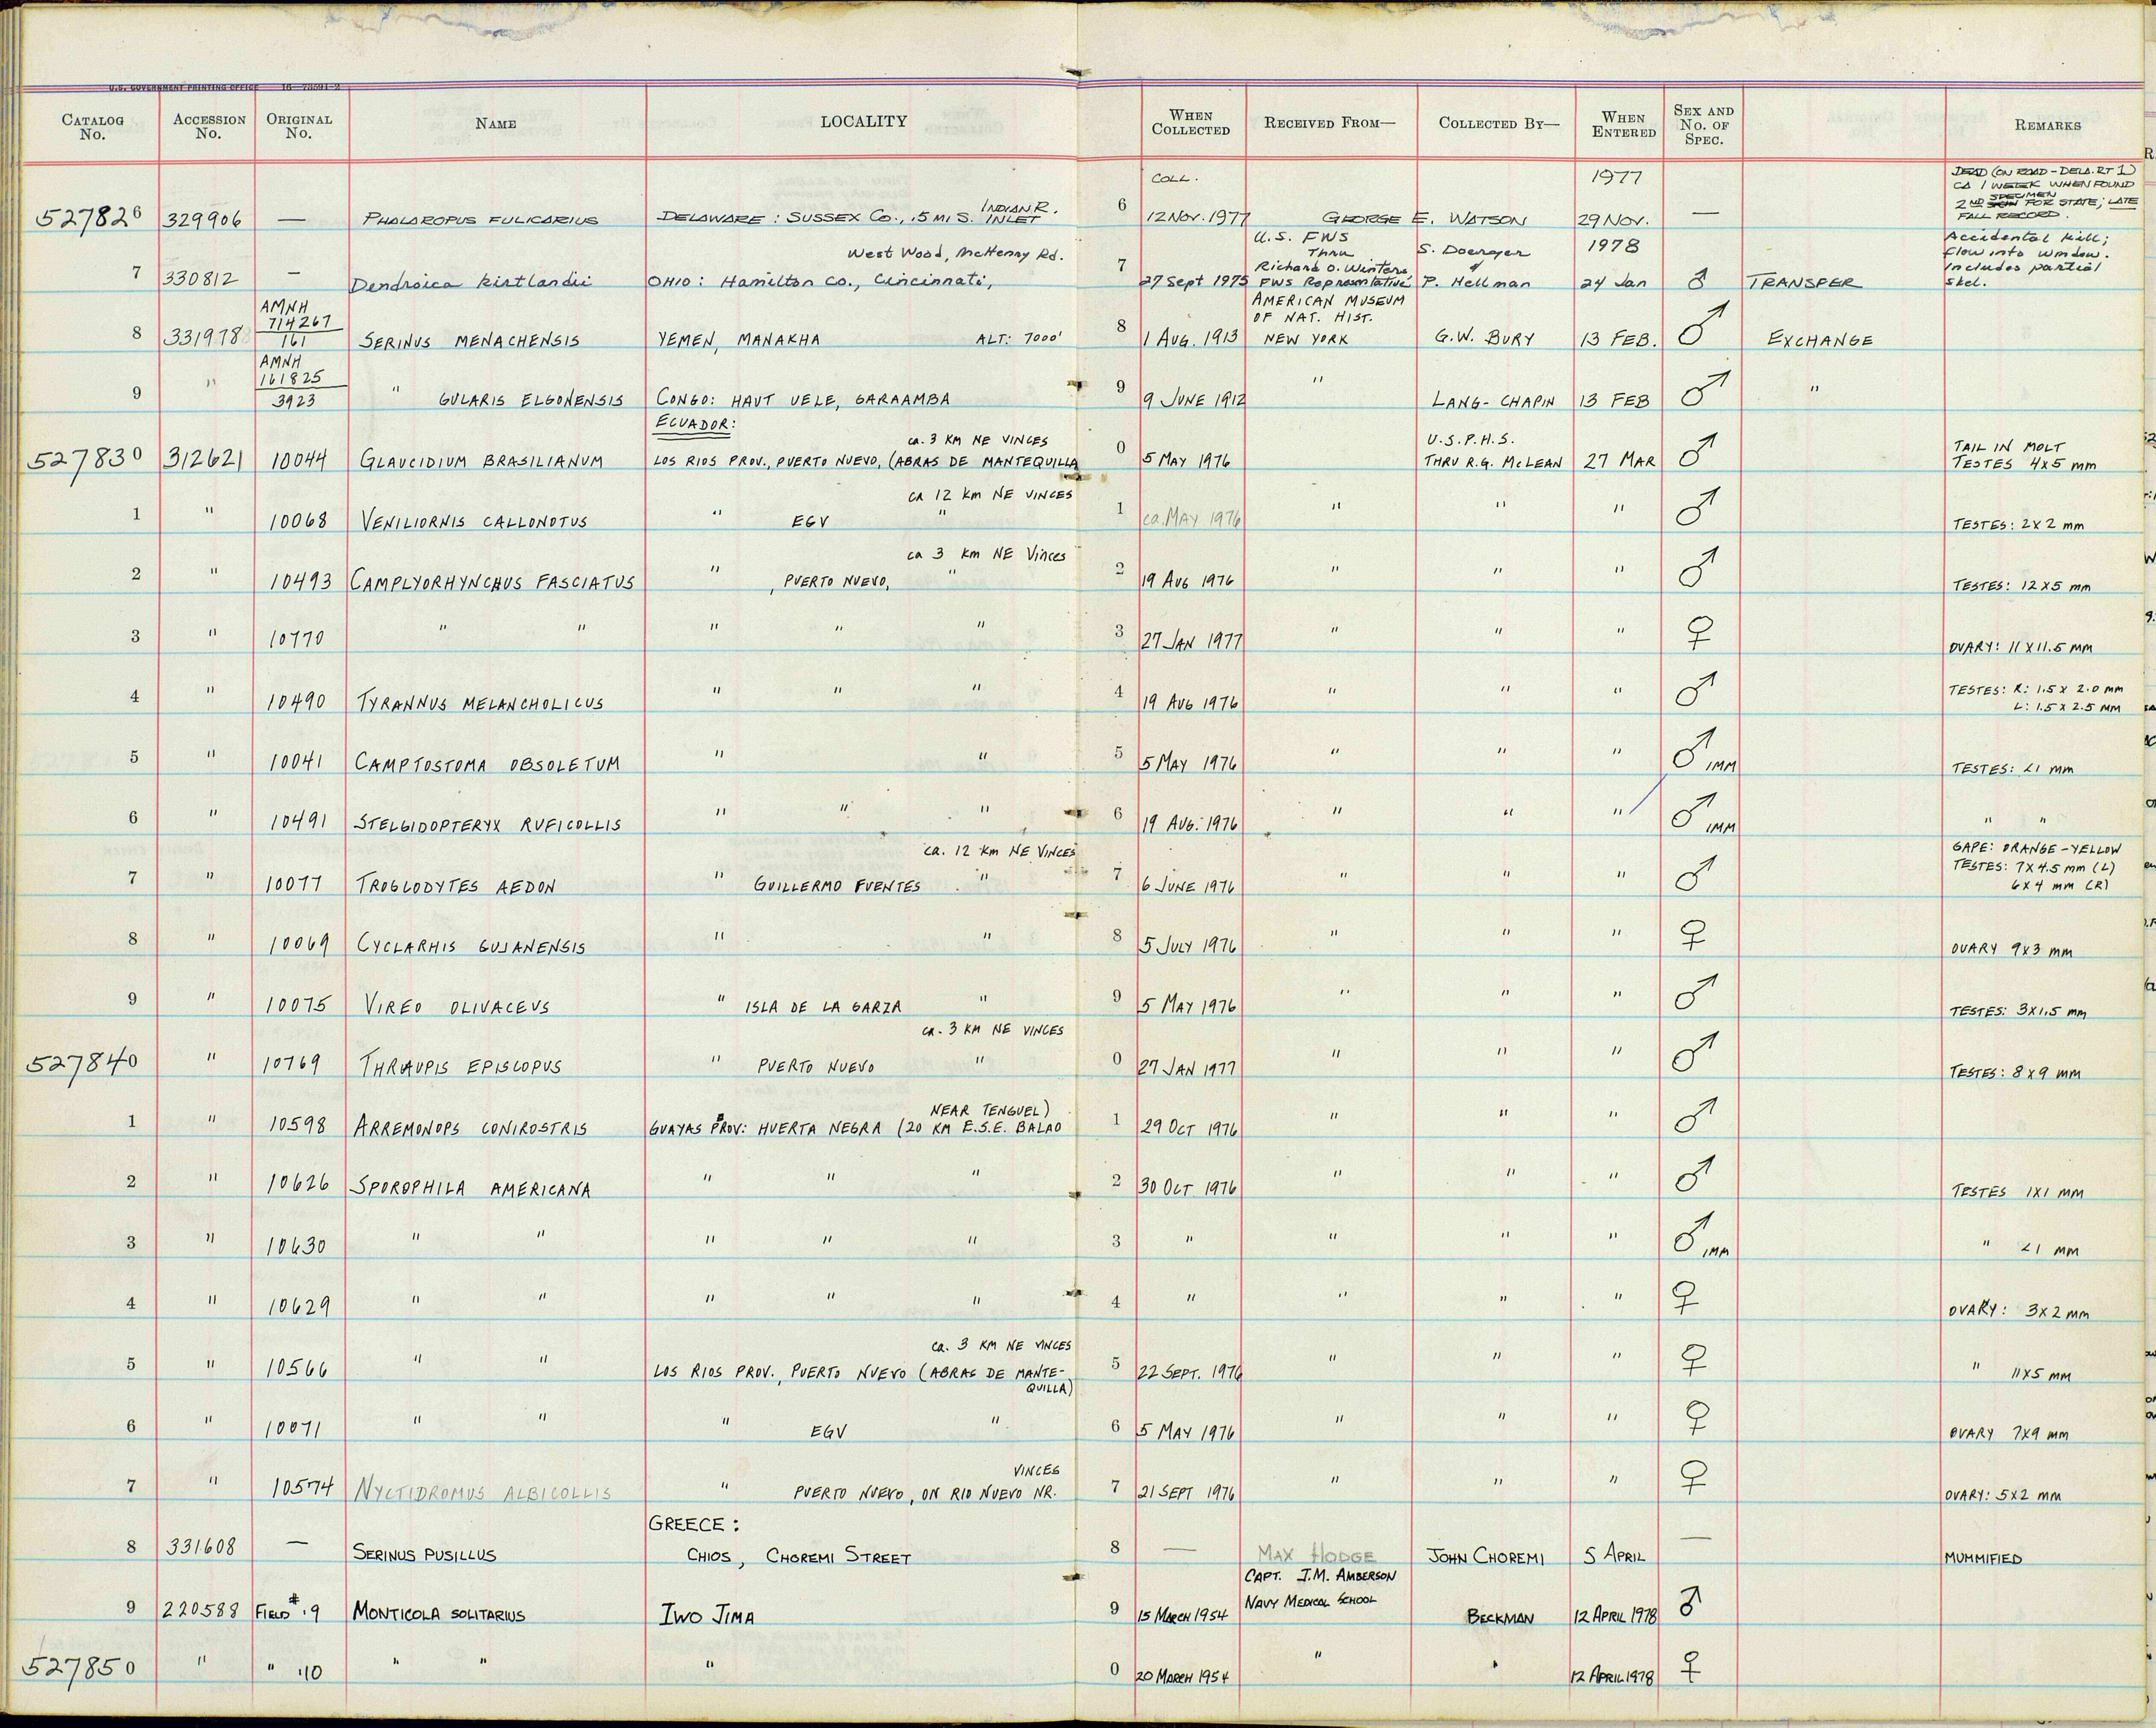 U.S. GOVERNMENT PRINTING OFFICE 16—73591-2
CATALOG No. ACCESSION No. ORIGINAL No. NAME LOCALITY WHEN COLLECTED RECEIVED FROM— COLLECTED BY— WHEN ENTERED SEX AND No. OF SPEC. REMARKS
COLL. 1977 DEAD (ON ROAD - DELA. RT 1)
CA 1 WEEK WHEN FOUND
INDIAN R. SPECIMEN
527826 329906 — PHALAROPUS FULICARIUS DELAWARE: SUSSEX CO., .5 MI S. INLET 6 12 NOV. 1977 GEORGE E. WATSON 29 NOV. — 2ND SKIN FOR STATE; LATE
FALL RECORD.
West Wood, McHenry Rd. U.S. FWS Thru S. Doerger 1978 Accidental kill;
flow into window.
7 330812 — Dendroica kirtlandii OHIO: Hamilton Co., Cincinnati, 7 27 Sept 1975 Richard O. Winters, FWS Representative & P. Hellman 24 Jan ♂ TRANSFER Includes partial
skel.
AMNH 714267 AMERICAN MUSEUM
OF NAT. HIST.
8 331978 161 SERINUS MENACHENSIS YEMEN, MANAKHA ALT: 7000' 8 1 AUG. 1913 NEW YORK G.W. BURY 13 FEB. ♂ EXCHANGE
AMNH 161825
9 " 3923 " GULARIS ELGONENSIS CONGO: HAUT UELE, GARAAMBA 9 9 JUNE 1912 " LANG-CHAPIN 13 FEB ♂ "
ECUADOR:
ca. 3 KM NE VINCES U.S.P.H.S. TAIL IN MOLT
527830 312621 10044 GLAUCIDIUM BRASILIANUM LOS RIOS PROV., PUERTO NUEVO, (ABRAS DE MANTEQUILLA 0 5 MAY 1976 THRU R.G. McLEAN 27 MAR ♂ TESTES 4x5 mm
ca 12 km NE VINCES
1 " 10068 VENILIORNIS CALLONOTUS " EGV " 1 ca. MAY 1976 " " " ♂ TESTES: 2x2 mm
ca 3 km NE Vinces
2 " 10493 CAMPLYORHYNCHUS FASCIATUS " , PUERTO NUEVO, " 2 19 AUG 1976 " " " ♂ TESTES: 12x5 mm
3 " 10770 " " " " " 3 27 JAN 1977 " " " ♀ OVARY: 11x11.5 mm
4 " 10490 TYRANNUS MELANCHOLICUS " " " 4 19 AUG 1976 " " " ♂ TESTES: R: 1.5 x 2.0 mm
L: 1.5 x 2.5 MM
5 " 10041 CAMPTOSTOMA OBSOLETUM " " 5 5 MAY 1976 " " " ♂ IMM TESTES: <1 mm
6 " 10491 STELGIDOPTERYX RUFICOLLIS " " " 6 19 AUG. 1976 " " " ♂ IMM " "
ca. 12 km NE VINCES GAPE: ORANGE-YELLOW
TESTES: 7x4.5 mm (L)
7 " 10077 TROGLODYTES AEDON " GUILLERMO FUENTES " 7 6 JUNE 1976 " " " ♂ 6x4 mm (R)
8 " 10069 CYCLARHIS GUJANENSIS " " 8 5 JULY 1976 " " " ♀ OVARY 9x3 mm
9 " 10075 VIREO OLIVACEUS " ISLA DE LA GARZA " 9 5 MAY 1976 " " " ♂ TESTES: 3x1.5 mm
ca. 3 KM NE VINCES
527840 " 10769 THRAUPIS EPISCOPUS " PUERTO NUEVO " 0 27 JAN 1977 " " " ♂ TESTES: 8x9 mm
NEAR TENGUEL)
1 " 10598 ARREMONOPS CONIROSTRIS GUAYAS PROV: HUERTA NEGRA (20 KM E.S.E. BALAO 1 29 OCT 1976 " " " ♂
2 " 10626 SPOROPHILA AMERICANA " " " 2 30 OCT 1976 " " " ♂ TESTES 1x1 MM
3 " 10630 " " " " " 3 " " " " ♂ IMM " <1 MM
4 " 10629 " " " " " 4 " " " " ♀ OVARY: 3x2 mm
ca. 3 KM NE VINCES
5 " 10566 " " LOS RIOS PROV., PUERTO NUEVO (ABRAS DE MANTE- 5 22 SEPT. 1976 " " " ♀ " 11x5 mm
QUILLA)
6 " 10071 " " " EGV " 6 5 MAY 1976 " " " ♀ OVARY 7x9 mm
VINCES
7 " 10574 NYCTIDROMUS ALBICOLLIS " PUERTO NUEVO, ON RIO NUEVO NR. 7 21 SEPT 1976 " " " ♀ OVARY: 5x2 mm
GREECE:
8 331608 — SERINUS PUSILLUS CHIOS, CHOREMI STREET 8 — MAX HODGE JOHN CHOREMI 5 APRIL — MUMMIFIED
CAPT. J.M. AMBERSON
NAVY MEDICAL SCHOOL
9 220588 FIELD #:9 MONTICOLA SOLITARIUS IWO JIMA 9 15 MARCH 1954 BECKMAN 12 APRIL 1978 ♂
527850 " " :10 " " " 0 20 MARCH 1954 " " 12 APRIL 1978 ♀